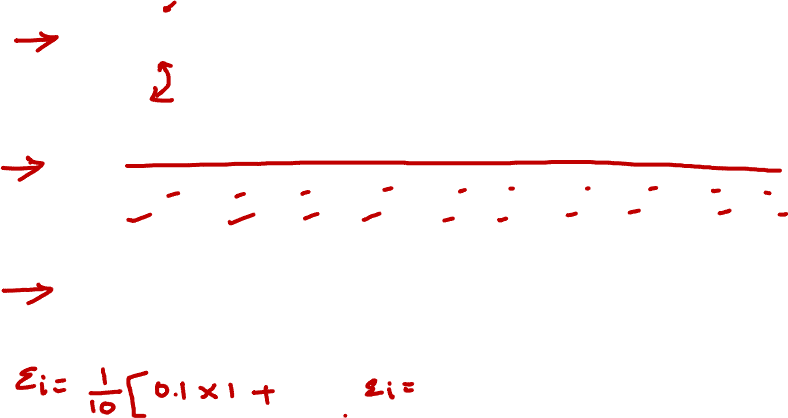 Σi = 1/10 [ 0.1 × 1 + . Σi =